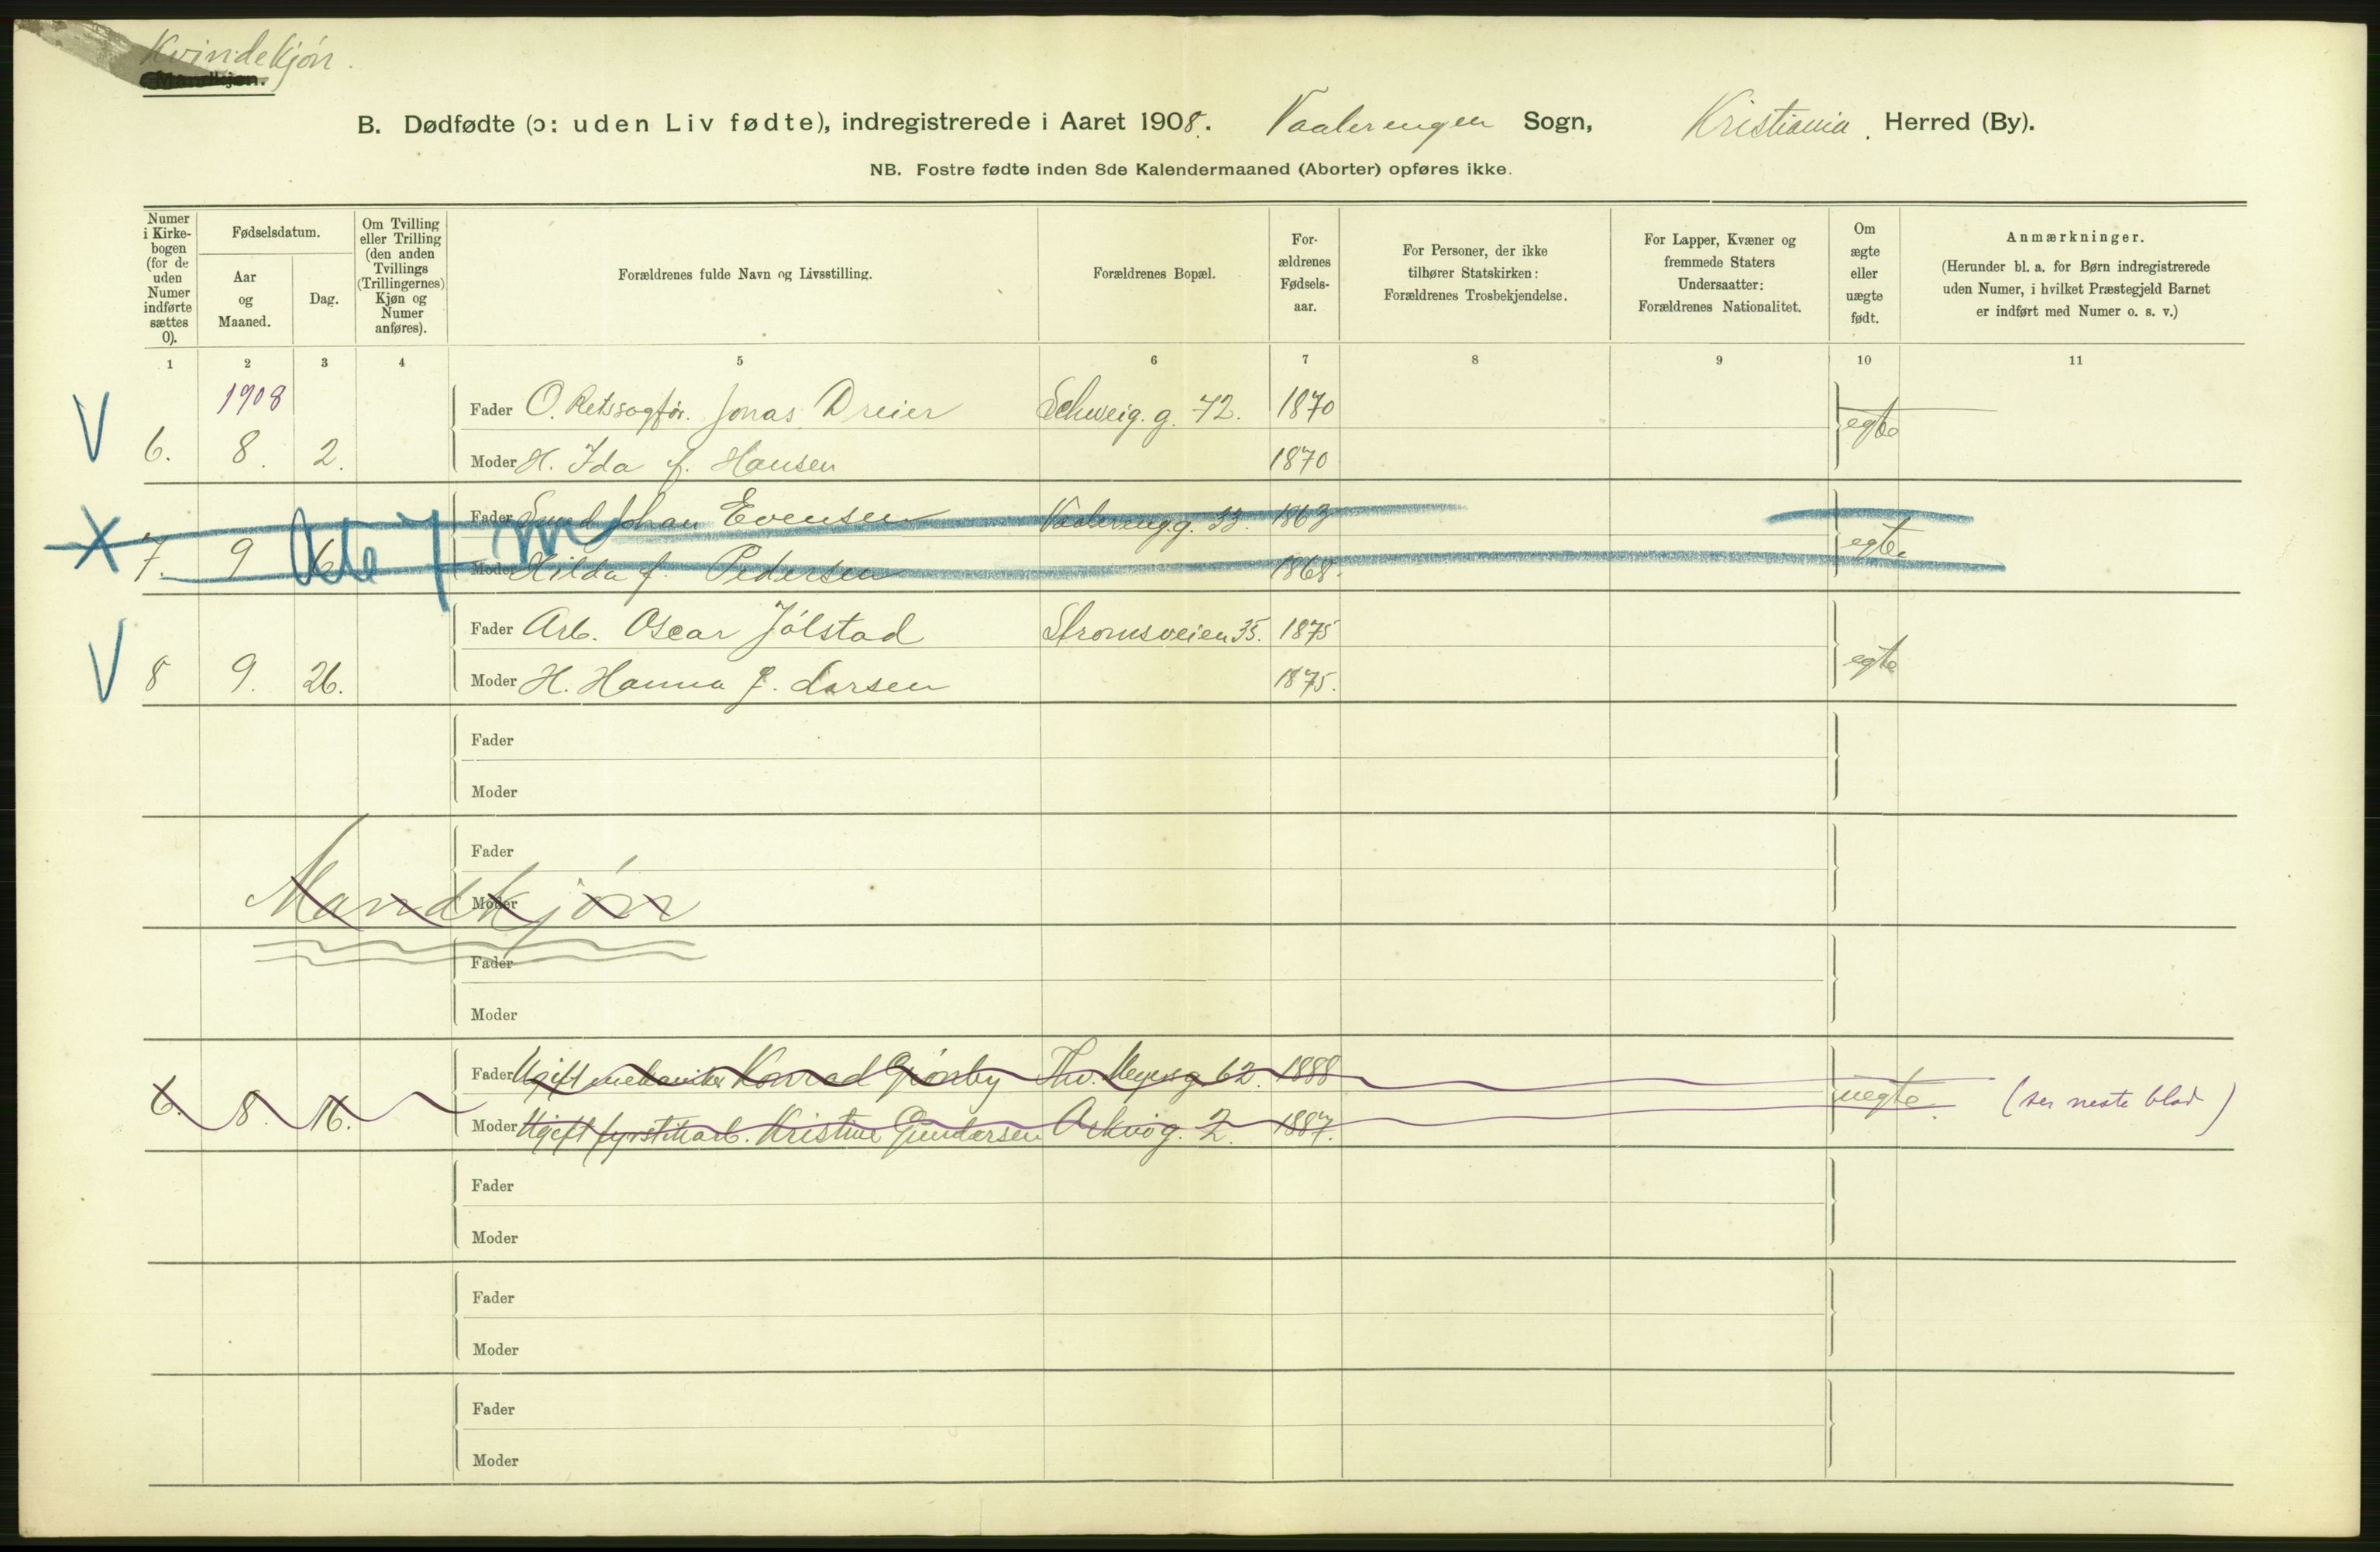 Kvindekjøn.
Mandkjøn.
B. Dødfødte (ɔ: uden Liv fødte), indregistrerede i Aaret 1908. Vaalerengen Sogn, Kristiania. Herred (By).
NB. Fostre fødte inden 8de Kalendermaaned (Aborter) opføres ikke.
Numer i Kirke-bogen (for de uden Numer indførte sættes 0).
Fødselsdatum.
Aar og Maaned.
Dag.
Om Tvilling eller Trilling (den anden Tvillings (Trillingernes) Kjøn og Numer anføres).
Forældrenes fulde Navn og Livsstilling.
Forældrenes Bopæl.
For-ældrenes Fødsels-aar.
For Personer, der ikke tilhører Statskirken: Forældrenes Trosbekjendelse.
For Lapper, Kvæner og fremmede Staters Undersaatter: Forældrenes Nationalitet.
Om ægte eller uægte født.
Anmærkninger.
(Herunder bl. a. for Børn indregistrerede uden Numer, i hvilket Præstegjeld Barnet er indført med Numer o. s. v.)
1 2 3 4 5 6 7 8 9 10 11
1908
V
Fader O. Retssagfør. Jonas Dreier Schweig. g. 72. 1870 egte
6. 8. 2. Moder H. Ida f. Hansen 1870
X
Fader Johan Evensen Vaalereng.g. 33. 1863 egte
7. 9 Moder Hilda f. Pedersen 1868.
V
Fader Arb. Oscar Jölstad Strömsveien 35. 1875 egte
8 9. 26. Moder H. Hanna f. Larsen 1875.
Fader
Moder
Fader
Mandkjøn
Moder
Fader
Moder
Fader Ugift mekaniker Konrad Grönby Thv. Meyersg. 62. 1888 uegte (ser neste blad)
6. 8. 16. Moder Ugift fyrstikarb. Kristine Gundersen 2. 1887.
Fader
Moder
Fader
Moder
Fader
Moder